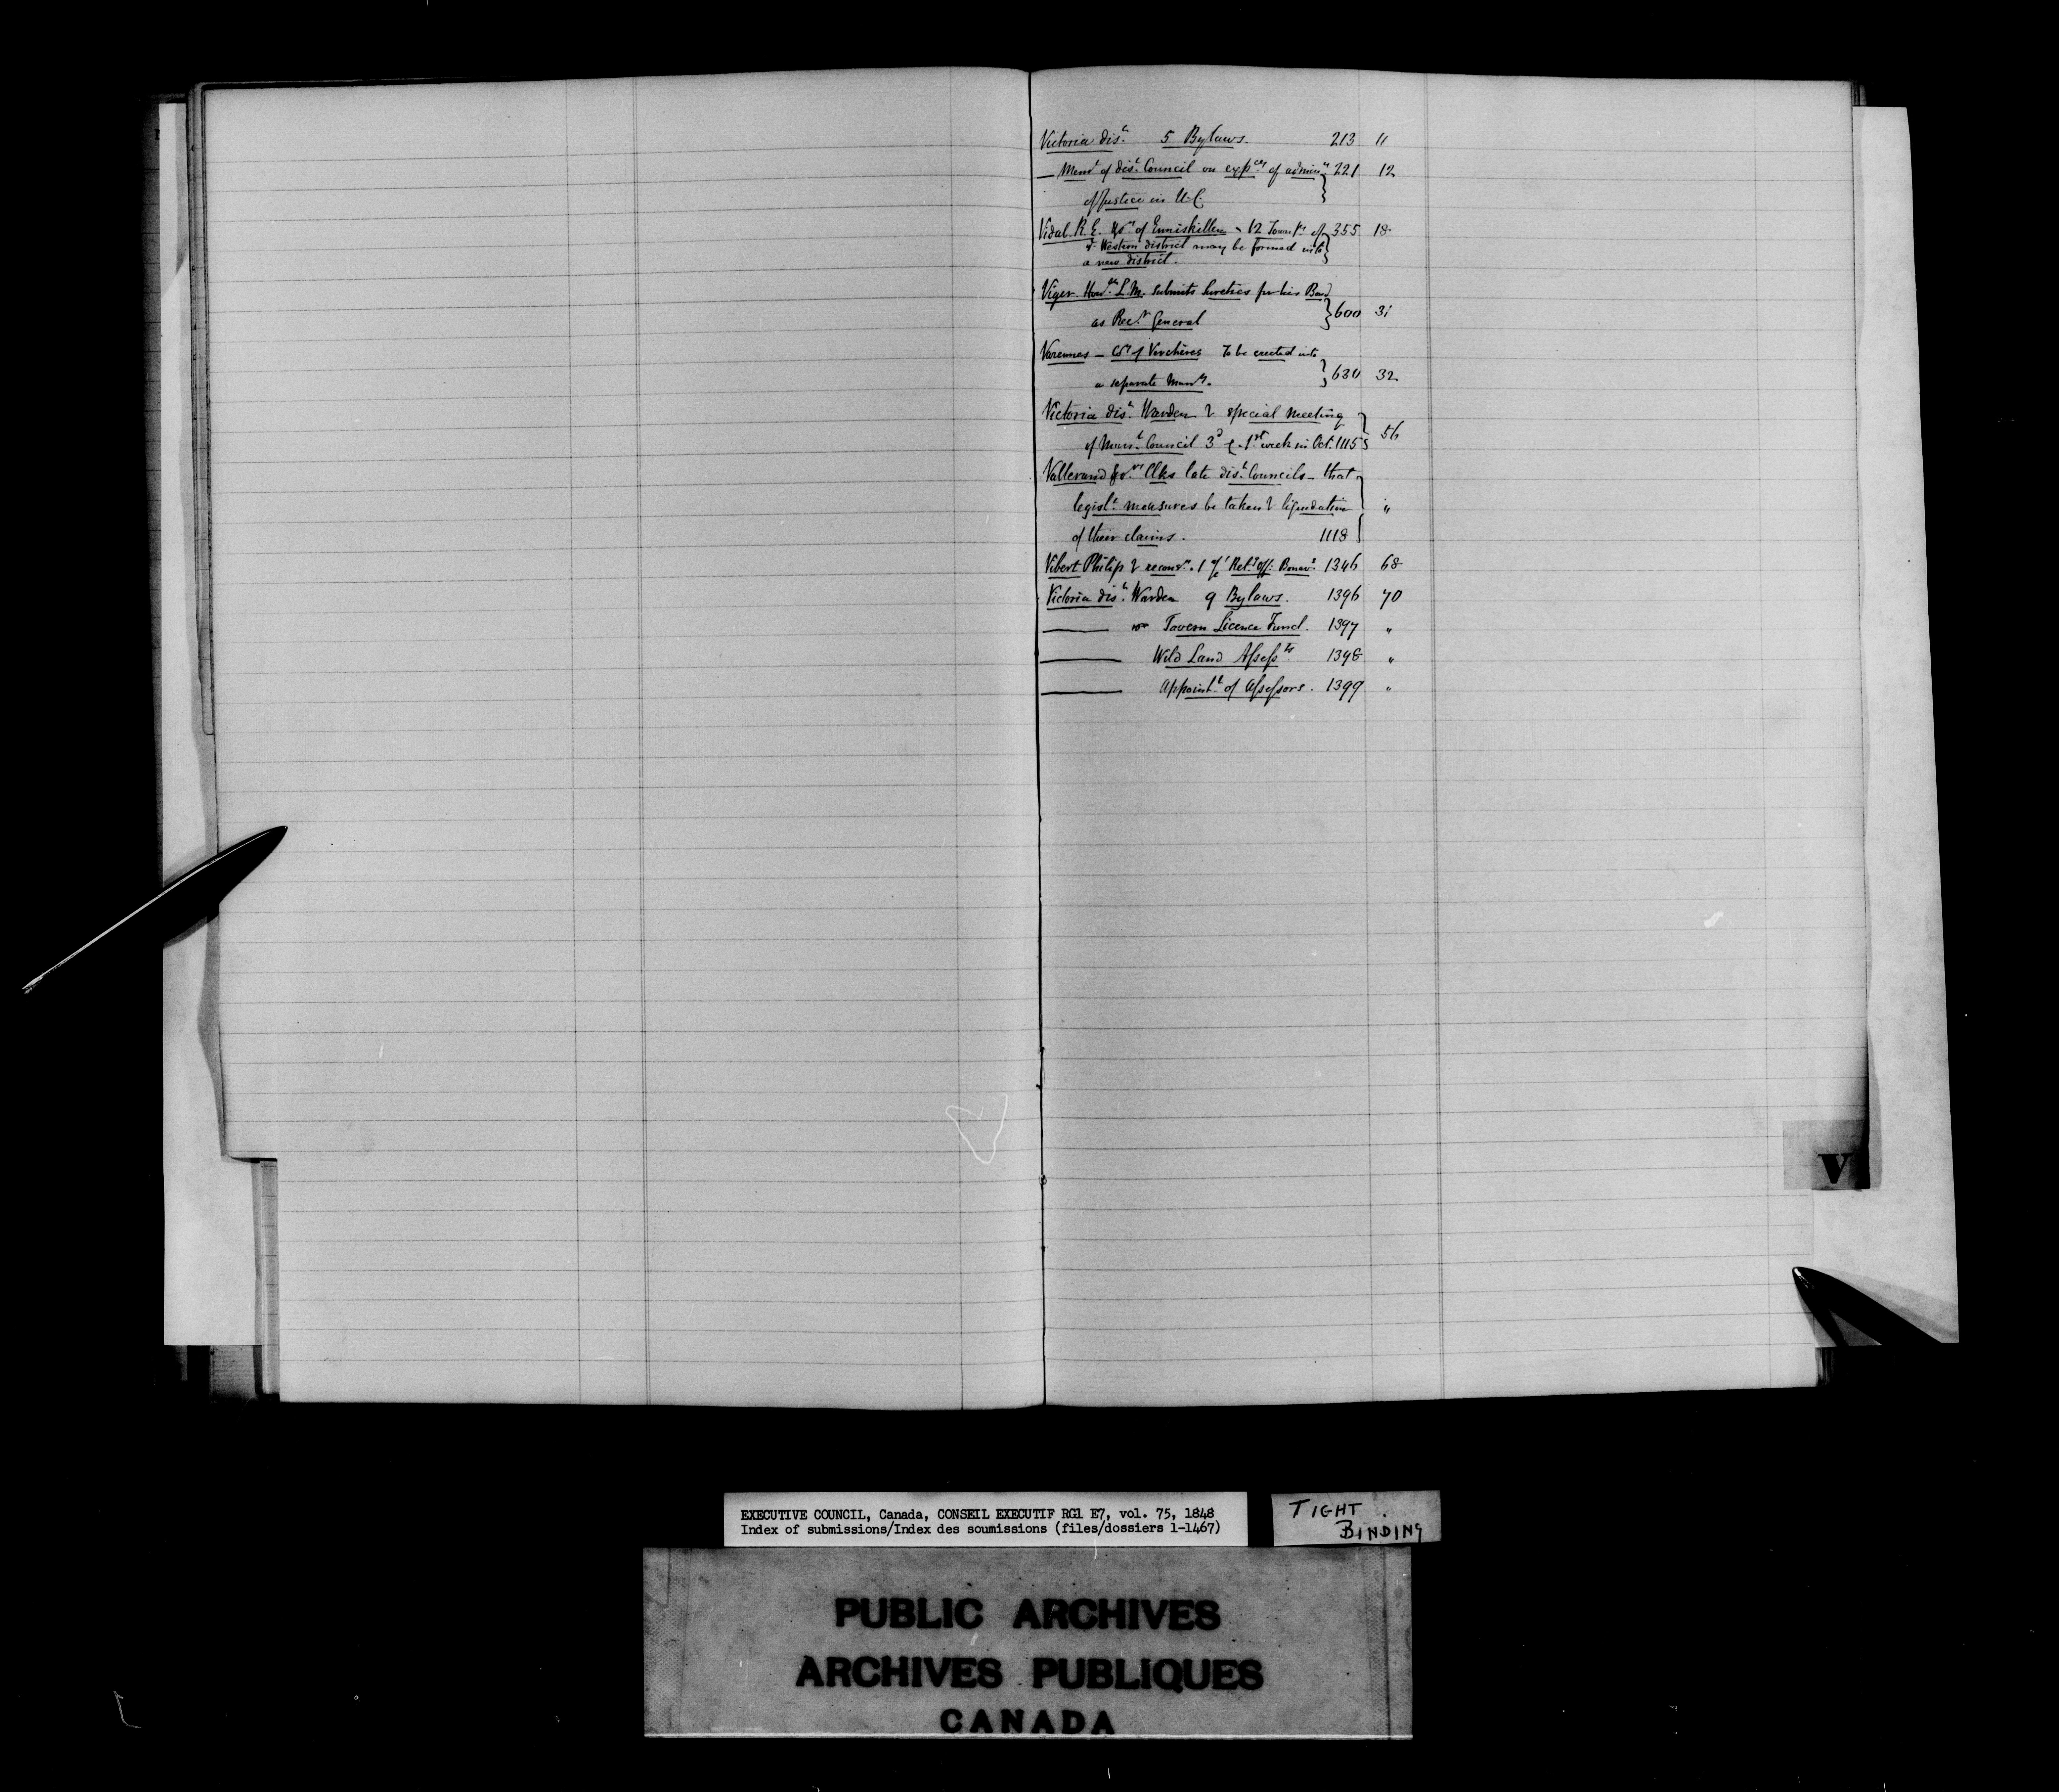 Victoria dis.t 5 Bylaws. 213 11
— Mem.l of dis.t Council on exp.ces of admin.n 221 12
of Justice in U.C.
Vidal R. E. of Enniskillen 12 Town.ps of 355 18
Western district may be formed into
a new district.
Viger Hon.ble L.M. submits Sureties for his Bond
as Rec.r General 600 31
Varennes — Co.y of Verchères To be erected into
a separate Mun.ty. 630 32
Victoria dis.t Warden special meeting
of Mun.l Council 3d 1st week in Oct. 1115 56
Vallerand Clks late dis.t Councils — that
legisl.e measures be taken liquidation "
of their claims. 1118
Vibert Philip 1 Ret.g Off. Bonav.e 1346 68
Victoria dis.t Warden 9 Bylaws. 1396 70
—— Tavern Licence Fund. 1397 "
—— Wild Land Assess.ts 1398 "
—— Appoint.t of Assessors. 1399 "
V
EXECUTIVE COUNCIL, Canada, CONSEIL EXECUTIF RG1 E7, vol. 75, 1848
Index of submissions/Index des soumissions (files/dossiers 1-1467)
TIGHT
BINDING
PUBLIC ARCHIVES
ARCHIVES PUBLIQUES
CANADA